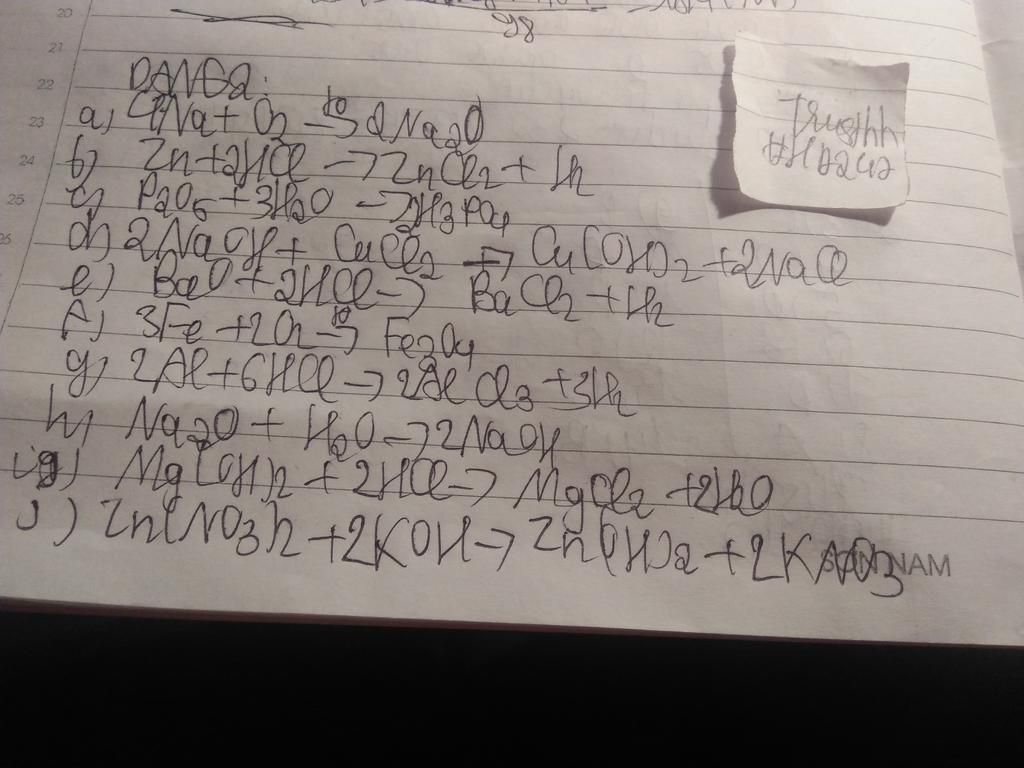 20
98
21
22
DẠNG 2:
23
a) 4Na + O2 –to→ 2Na2O
24
b) Zn + 2HCl → ZnCl2 + H2
25
c) P2O5 + 3H2O → 2H3PO4
26
d) 2NaOH + CuCl2 → Cu(OH)2 + 2NaCl
e) BaO + 2HCl → BaCl2 + H2
f) 3Fe + 2O2 –to→ Fe3O4
g) 2Al + 6HCl → 2AlCl3 + 3H2
h) Na2O + H2O → 2NaOH
i) Mg(OH)2 + 2HCl → MgCl2 + 2H2O
j) Zn(NO3)2 + 2KOH → Zn(OH)2 + 2KNO3
NAM